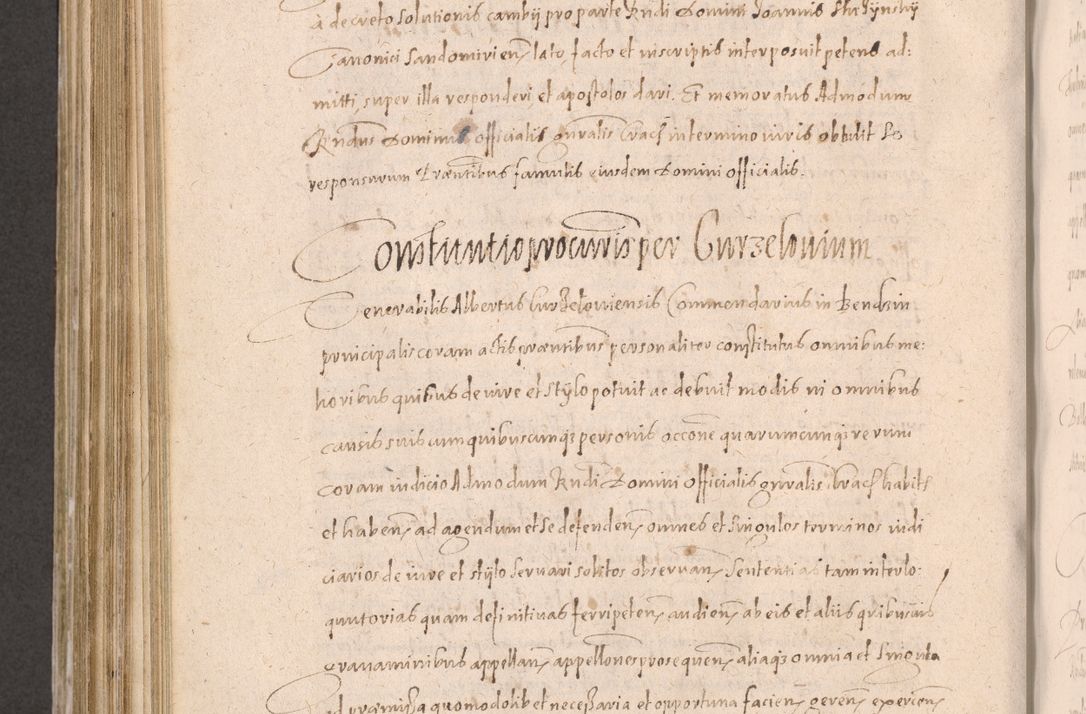 à decreto solutionis cambÿ pro parte Rndi Domini Joannis
Canonici Sandomirien, lato, facto et inscriptis interposuit petens ad:
mitti, super illa responderi et apostolos dari. Et memoratus Admodum
Rndus Dominus officialis gnralis Crac in termino iuris obtulit se
responsurum Præntibus famulis eiusdem Domini officialis.
Constitutio procuris per Curzelouium
Venerabilis Albertus Curzelouiensis Commendarius in Bendzin
principalis coram actis præntibus personaliter constitutus omnibus me:
lioribus quibus de iure et stÿlo potuit ac debuit modis in omnibus
causis suis cum quibuscunq3 personis occone quarumcunq3 rerum
coram iudicio Admodum Rndi Domini officialis gnralis Crac habit
et haben, ad agendum et se defenden, omnes et singulos terminos iudi
ciarios de iure et stÿlo seruari solitos obseruan, sententias tam interlo:
quutorias quam definitiuas ferri peten, audien, ab eis et aliis quibusuis
grauaminibus appellan, appellones prosequen, aliaq3 omnia et singula
ad præmissa quomodolibet necessaria et opportuna facien, geren, exercen,